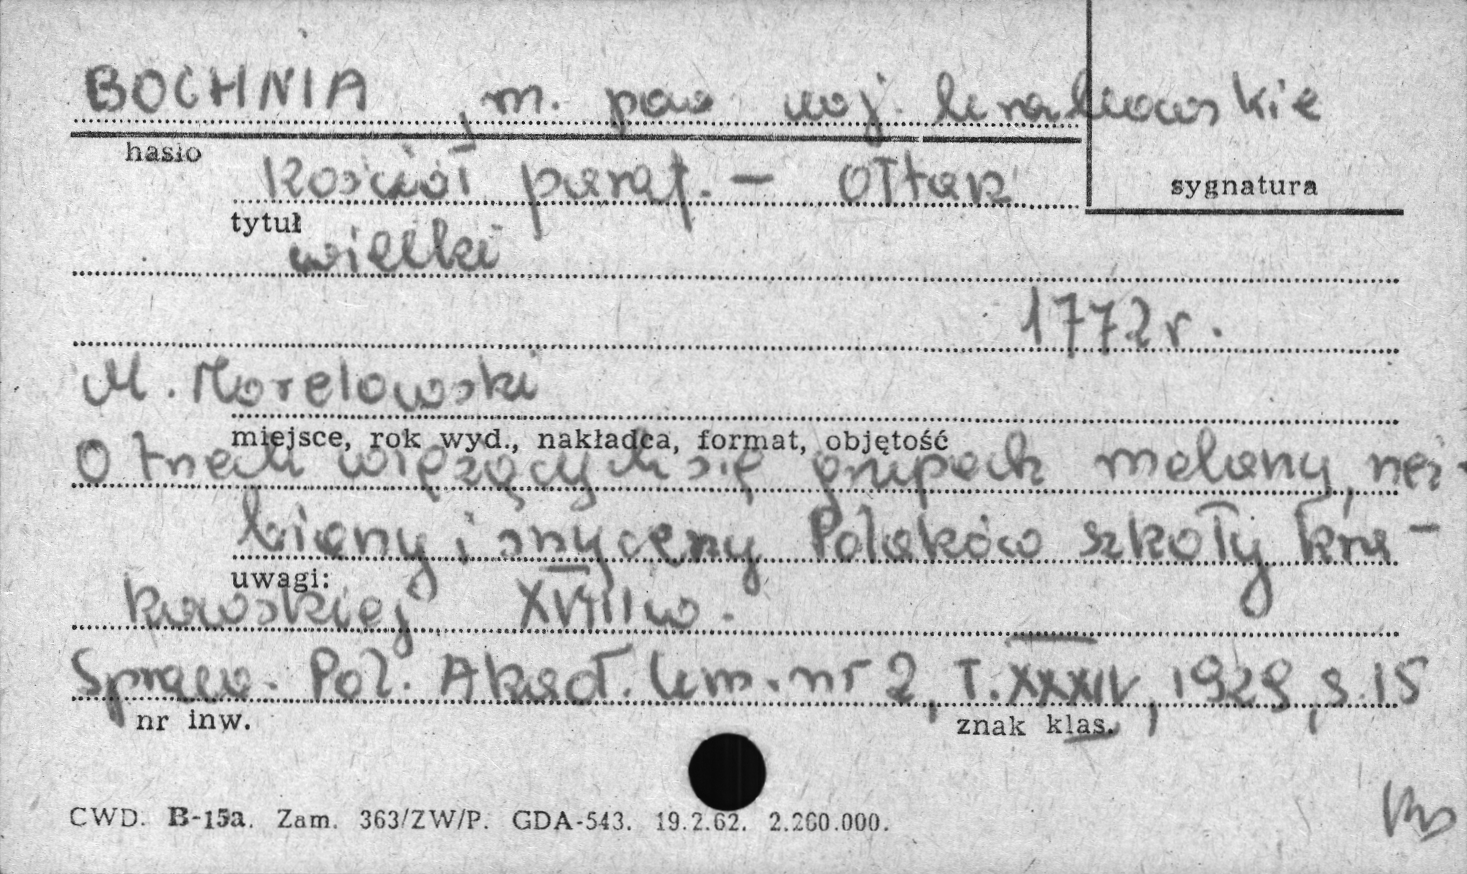 BOCHNIA, m. pow woj. krakowskie
hasło
Kościół paraf. – Ołtarz
sygnatura
tytuł
wielki
1772 r.
M. Morelowski
miejsce, rok wyd., nakładca, format, objętość
O trzech wiążących się grupach malarzy, rzeź-
biarzy i snycerzy Polaków szkoły kra-
uwagi:
kowskiej XVIII w.
Spraw. Pol. Akad. Um. nr 2, T. XXXIV, 1929, s. 15
nr inw.
znak klas.
CWD. B-15a. Zam. 363/ZW/P. GDA-543. 19.2.62. 2.260.000.